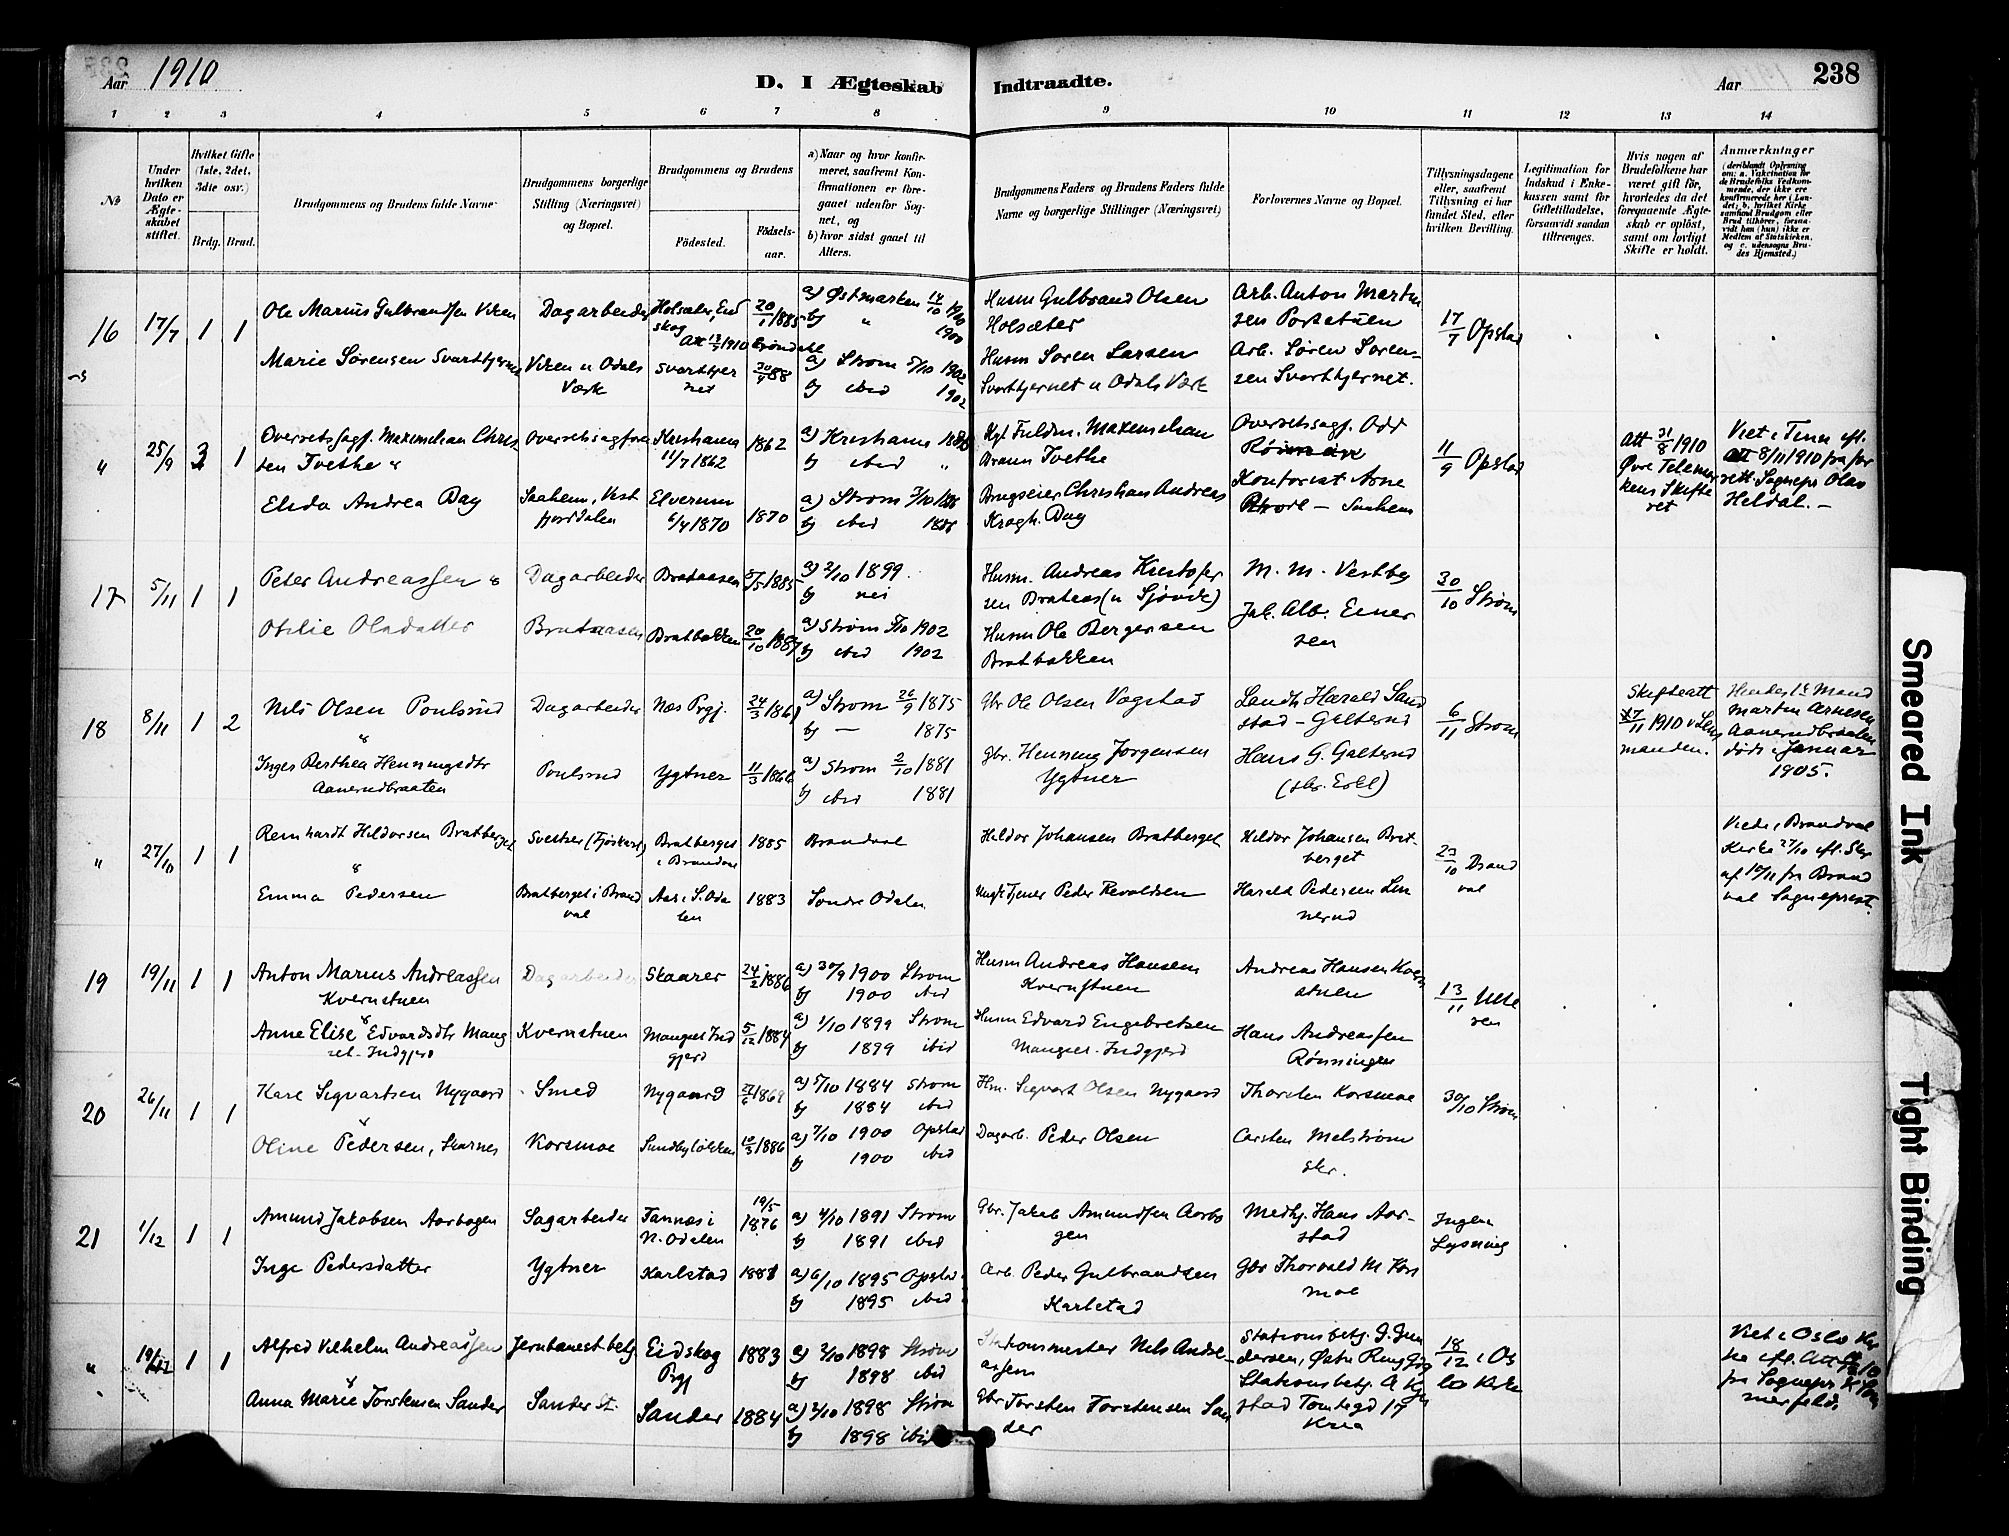 Aar 1910
D. I Ægteskab Indtraadte.
Aar
238
1 2 3 4 5 6 7 8 9 10 11 12 13 14
№
Under hvilken Dato er Ægteskabet stiftet.
Hvilket Gifte (1ste, 2det, 3die osv.)
Brdg. Brud.
Brudgommens og Brudens fulde Navne
Brudgommens borgerlige Stilling (Næringsvei) og Bopæl.
Brudgommens og Brudens
Fødested.
Fødselsaar.
a) Naar og hvor konfirmeret, saafremt Konfirmationen er foregaaet udenfor Sognet, og
b) hvor sidst gaaet til Alters.
Brudgommens Faders og Brudens Faders fulde Navne og borgerlige Stillinger (Næringsvei)
Forlovernes Navne og Bopæl.
Tillysningsdagene eller, saafremt Tillysning ei har fundet Sted, efter hvilken Bevilling.
Legitimation for Indskud i Enkekassen samt for Giftetilladelse, forsaavidt saadan tiltrænges.
Hvis nogen af Brudefolkene har været gift før, hvorledes da det foregaaende Ægteskab er opløst, samt om lovligt Skifte er holdt.
Anmærkninger
(deriblandt Oplysning om: a. Vakcination for de Brudefolks Vedkommende, der ikke ere konfirmerede her i Landet; b. hvilket Kirkesamfund Brudgom eller Brud tilhører, forsaavidt han (hun) ikke er Medlem af Statskirken, og c. udensogns Brudes Hjemsted.)
16 17/7 1 1
Ole Marius Gulbrandsen Viken
Dagarbeider
Holsæter, Eidskog
20/1 1885
a) Østmarken 14/10 1900
b) " 1900
Husm Gulbrand Olsen Holsæter
Arb. Anton Martinsen Portstuen
17/7 Opstad
Marie Sørensen Svarttjernet
Viken u Odals Værk
Svarttjernet
30/9 88
a) Strøm 5/10 1902
b) ibid 1902
Husm Søren Larsen Svarttjernet u Odals Værk
Arb. Søren Sørensen Svarttjernet.
" 25/9 3 1
Overretssagf. Maximilian Christen Tvethe &
Overretssagfører
Kristiania 11/7 1862
1862
a) Kristiania
b) ibid "
Kgl. Fuldm. Maximilian Braun Tvethe
Overretssagf. Odd
11/9 Opstad
Att 31/8 1910 Øvre Telemarkens Skifteret
Viet i Tinn efl. Att 8/11 1910 fra forrett. Sognepr. Olav Heldal. —
Elida Andrea Dag
Saaheim, Vestfjorddalen
Elverum 6/4 1870
1870
a) Strøm
b) ibid
Brugseier Christian Andreas Kragh. Dag
Kontorist Arne — Saaheim
17 5/11 1 1
Peter Andreassen &
Dagarbeider
Brataasen
5/5 1885
a) 2/10 1899.
b) nei
Husm. Andreas Kristofersen Brataas (u Sjøvik)
M. M. Vestby
30/10 Strøm
Otilie Olsdatter
Brataasen
Bratbakken
20/10 1887
a) Strøm 5/10 1902
b) ibid 1902
Husm Ole Bergersen Bratbakken
Jak. Alb. Einersen
18 8/11 1 2
Nils Olsen Poulsrud
&
Dagarbeider
Næs Prgj.
24/3 1861
a) Strøm 26/9 1875
b) — 1875
Gbr Ole Olsen Vagstad
Landh Harald Sandstad - Galterud
6/11 Strøm
Skifteatt 17/11 1910 v Lensmanden.
Hendes 1ste Mand Martin Arnesen Aanerudbraaten døde i Januar 1905.
Inger Berthea Henningsdtr Aanerudbraaten
Poulsrud
Ygtner
11/3 1866
a) Strøm 2/10 1881
b) ibid 1881
Gbr. Henning Jørgensen Ygtner
Hans G. Galterud
" 27/10 1 1
Reinhardt Hildorsen Bratberget
&
Sveitser (Fjøskarl)
Bratberget i Brandval
1885
Brandval
Hildor Johansen Bratberget
Hildor Johansen Bratberget
23/10 Brandval
Viede i Brandval Kirke 27/10 efl. Skr af 10/11 fra Brandval Sogneprest.
Emma Pedersen
Bratberget i Brandval
Aas i S. Odalen
1883
Søndre Odalen
Ungk Tjener Peder Revoldsen
Harald Pedersen Linnerud
19 19/11 1 1
Anton Marius Andreassen Kvernstuen
&
Dagarbeider
Skaarer
24/2 1886
a) 30/9 1900 Strøm
b) 1900 ibid
Husm Andreas Hansen Kvernstuen
Andreas Hansen Kvernstuen
13/11 Ullern
Anne Elise Edvardsdtr Mangset-Indgjerd
Kvernstuen
Mangset Indgjerd
5/12 1884
a) 1/10 1899 Strøm
b) 1899 ibid
Husm Edvard Engebretsen Mangset-Indgjerd
Hans Andreassen Rønningen
20 26/11 1 1
Karl Sigvartsen Nygaard
&
Smed
Nygaard
27/6 1869
a) 5/10 1884 Strøm
b) 1884 ibid
Hm. Sigvart Olsen Nygaard
Thorsten Korsmoe
30/10 Strøm
Oline Pedersen, Skarnes
Korsmoe
Sundbyløkken
10/3 1886
a) 7/10 1900 Opstad
b) 1900 ibid
Dagarb. Peder Olsen
Carsten Melstrøm skr.
21 1/12 1 1
Amund Jakobsen Aarbogen
Sagarbeider
Tannæs i N. Odalen
19/5 1876
a) 4/10 1891 Strøm
b) 1891 ibid
Gbr. Jakob Amundsen Aarbogen
Medhj. Hans Aarstad
Ingen Lysning
Inge Pedersdatter
Ygtner
Karlstad
1881
a) 6/10 1895 Opstad
b) 1895 ibid
Arb. Peder Gulbrandsen Karlstad
Gbr Thorvald M Korsmoe
" 19/12 1 1
Alfred Vilhelm Andreassen
&
Jernbanestbetj.
Eidskog Pgj
1883
a) 2/10 1898 Strøm
b) 1898 ibid
Stationsmester Nils Andreassen
Stationsbetj. G. Gundersen, Østre
18/12 i Oslo Kirke
Viet i Oslo Kirke efl. Att fra Sognepr.
Anna Marie Torstensen Sander
Sander St.
Sander
1884
a) 2/10 1898 Strøm
b) 1898 ibid
Gbr Torsten Torstensen Sander
Stationsbetj. A Tomtegd 17 Kria
Smeared Ink
Tight Binding